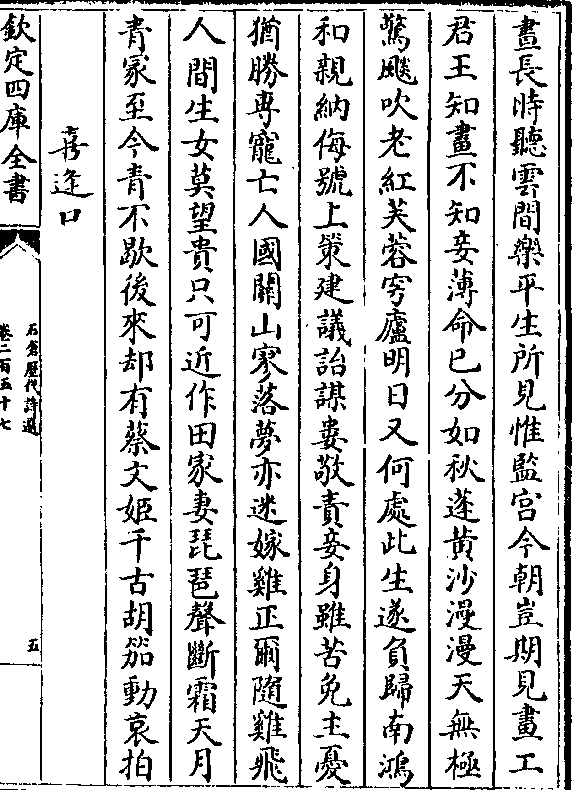 晝長時聽雲間樂平生所見惟監宫今朝豈期見畫工
君王知畫不知妾薄命已分如秋蓬黄沙漫漫天無極
驚飈吹老紅芙蓉穹廬明日又何處此生遂負歸南鴻
和親納侮號上策建議詒謀婁敬責妾身雖苦免主憂
猶勝専寵亡人國關山寥落夢亦迷嫁雞正爾隨雞飛
人間生女莫望貴只可近作田家妻琵琶聲斷霜天月
青冢至今青不歇後來却有蔡文姬千古胡笳動哀拍
喜逢口
欽定四庫全書
石倉歷代詩選
卷二百五十七
五